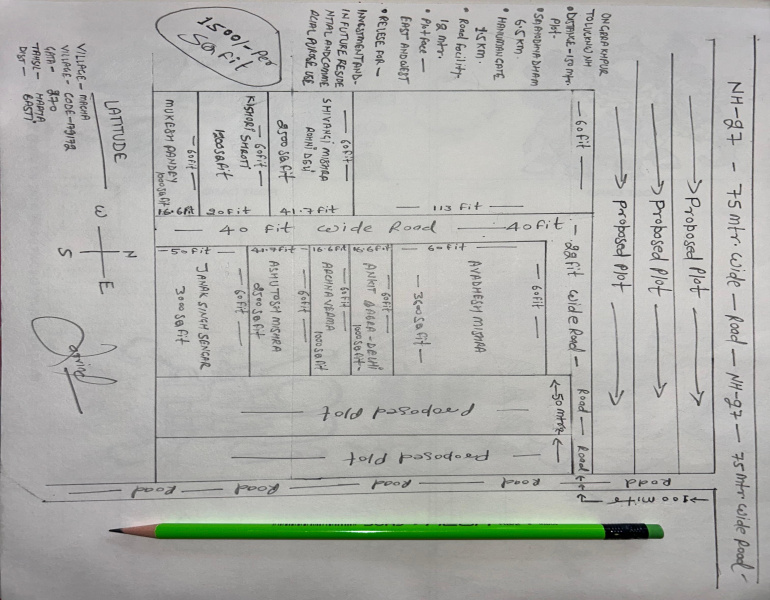 NH-97 - 75 mtr. wide - Road - NH-97 - 75 mtr wide Road -
→ PROPOSED PLOT →
→ PROPOSED PLOT →
→ PROPOSED PLOT →
TO LUCKNOW
• DISTANCE - 150 mtr.
PLOT -
6.5 KM.
• HANUMAN GATE
1.5 KM.
• Road facility-
12 mtr.
EAST AND WEST
• RELESE FOR -
INVESTMENT AND -
IN FUTURE RESIDE
NTIAL AND COMME
RCIAL PURPOSE USE
1500/- PER
SQ Fit
— 60 fit —
— 113 fit —
— 60 fit —
SHIVANGI MISHRA
ROHNI DEVI
2500 SQ fit
41.7 fit
— 60 fit —
KISHORI SHROTI
1200 SQ fit
20 fit
— 60 fit —
MUKESH PANDEY
1000 SQ fit
16.6 fit
— 40 Fit wide Road — 40 fit —
- 22 fit wide Road - Road - Road
— 60 fit —
— 60 fit —
AVADHESH MISHRA
— 3600 SQ fit —
16.6 fit
— 60 fit —
ANKIT - DELHI
1000 SQ fit -
16.6 fit
— 60 fit —
ARCHNA VERMA
1000 SQ fit
— 60 fit —
ASHUTOSH MISHRA
2500 SQ fit
— 50 fit —
— 60 fit —
JANAK SINGH SENGAR
3000 SQ fit
← 50 mtr ←
— Proposed Plot —
— Proposed Plot —
Road — Road — Road — Road — Road
LATITUDE
N
W
E
S
VILLAGE - MAJHA
VILLAGE - CODE -
GATA - 870
DIST -